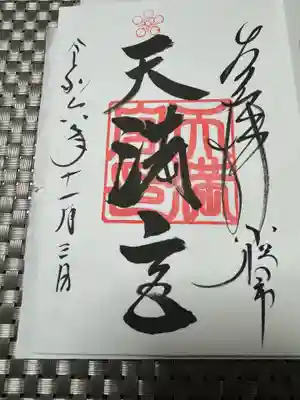 奉拝 小松市
天満宮
令和六年十一月三日